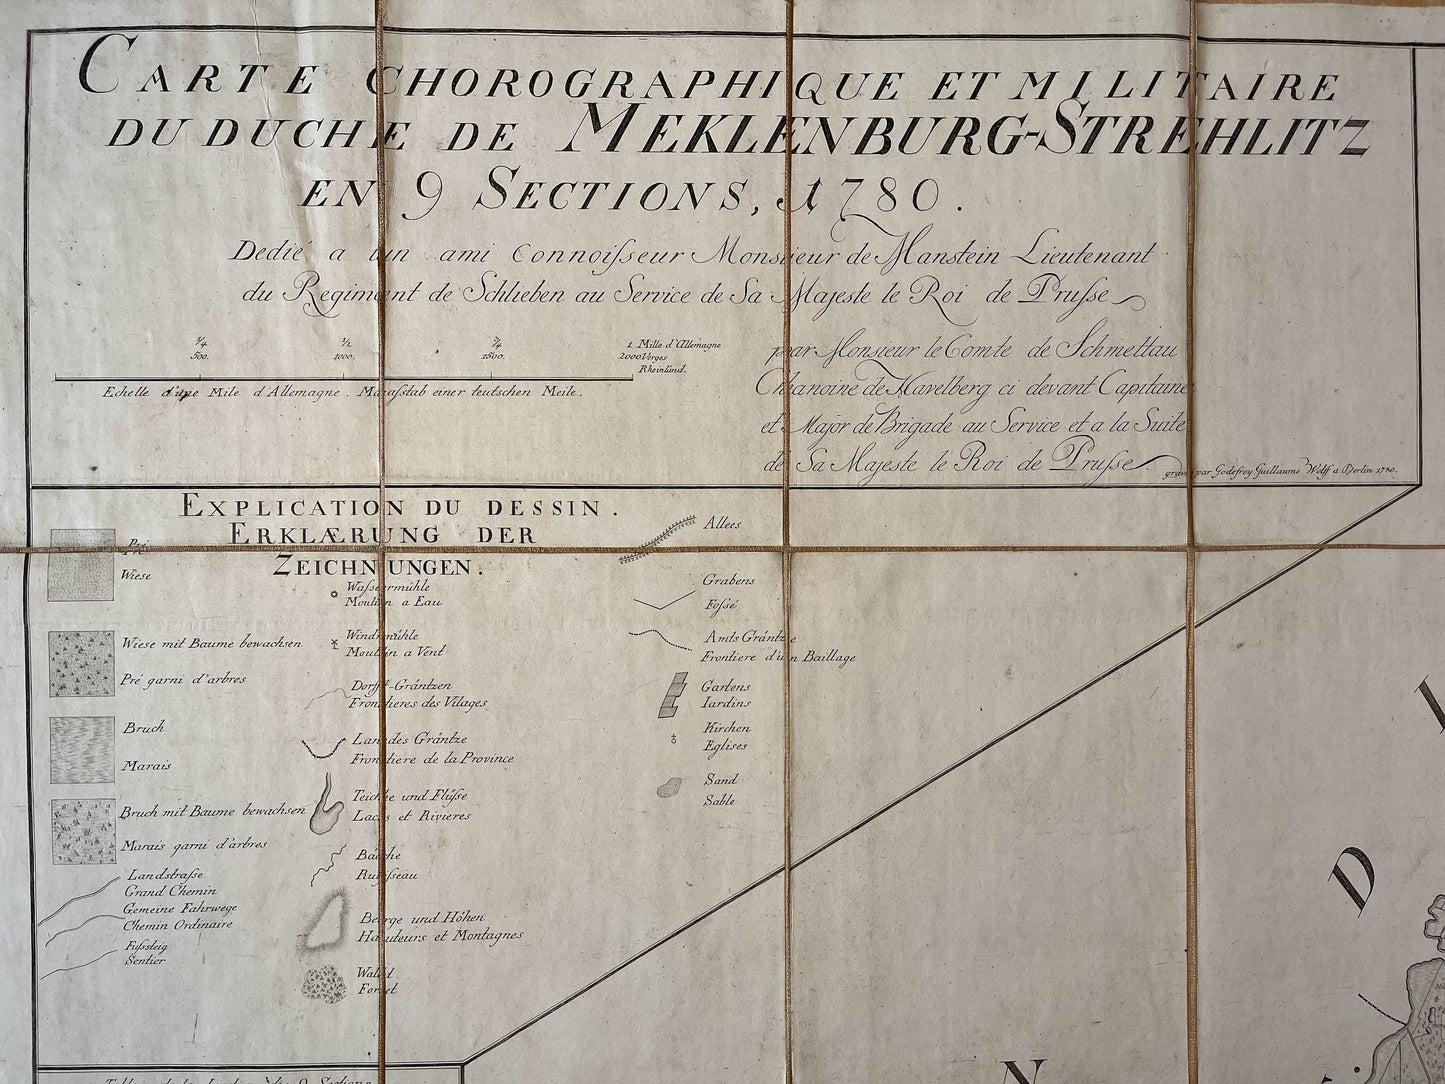 CARTE CHOROGRAPHIQUE ET MILITAIRE
DU DUCHE DE MEKLENBURG-STREHLITZ
EN 9 SECTIONS, 1780.
Dedié a un ami Connoiſseur Monsieur de Manstein Lieutenant
du Regiment de Schlieben au Service de Sa Majeste le Roi de Pruſse
par Monsieur le Comte de Schmettau
Chanoine de Havelberg ci devant Capitaine
et Major de Brigade au Service et a la Suite
de Sa Majeste le Roi de Pruſse.
gravé par Godefroy Guillaume Wolff a Berlin 1780.
¾ ½ ¾ 1. Mille d'Allemagne
500. 1000. 1500. 2000 Verges
Rheinländ.
Echelle d'une Mile d'Allemagne. Maaſsstab einer teutschen Meile.
EXPLICATION DU DESSIN.
ERKLÆRUNG DER
ZEICHNUNGEN.
Pré
Wiese
Wiese mit Baume bewachsen
Pré garni d'arbres
Bruch
Marais
Bruch mit Baume bewachsen
Marais garni d'arbres
Landstraſse
Grand Chemin
Gemeine Fahrwege
Chemin Ordinaire
Fuſssteig
Sentier
Waſsermühle
Moulin a Eau
Windmühle
Moulin a Vent
Dorffs-Gräntzen
Frontieres des Vilages
Landes Gräntze
Frontiere de la Province
Teiche und Flüſse
Lacs et Rivieres
Bäche
Ruiſseau
Berge und Höhen
Hauteurs et Montagnes
Wald
Foret
Allees
Grabens
Foſsé
Amts Gräntze
Frontiere d'un Baillage
Gartens
Iardins
Kirchen
Eglises
Sand
Sable
D
N